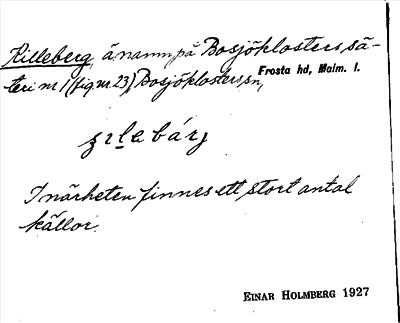 Killeberg, änamn på Bosjöklosters sä-
teri nr 1 (fig. nr 23), Bosjöklosters sn,
Frosta hd, Malm. l.
I närheten finnes ett stort antal
källor.
EINAR HOLMBERG 1927